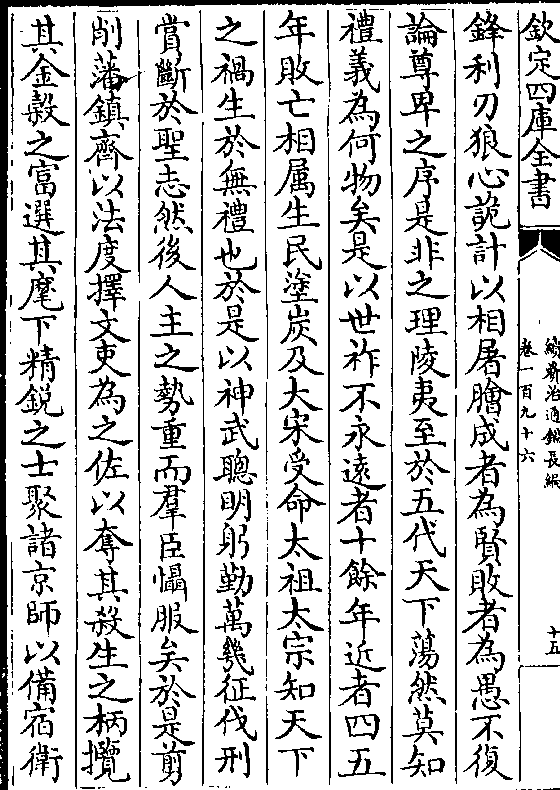 欽定四庫全書
續資治通鑑長編
卷一百九十六
十五
鋒利刃狼心詭計以相屠膾成者為賢敗者為愚不復
論尊卑之序是非之理陵夷至於五代天下蕩然莫知
禮義為何物矣是以世祚不永遠者十餘年近者四五
年敗亡相属生民塗炭及大宋受命太祖太宗知天下
之禍生於無禮也於是以神武聰明躬勤萬幾征伐刑
賞斷於聖志然後人主之勢重而羣臣懾服矣於是剪
削藩鎮齊以法度擇文吏為之佐以奪其殺生之柄攬
其金穀之富選其麾下精鋭之士聚諸京師以備宿衛